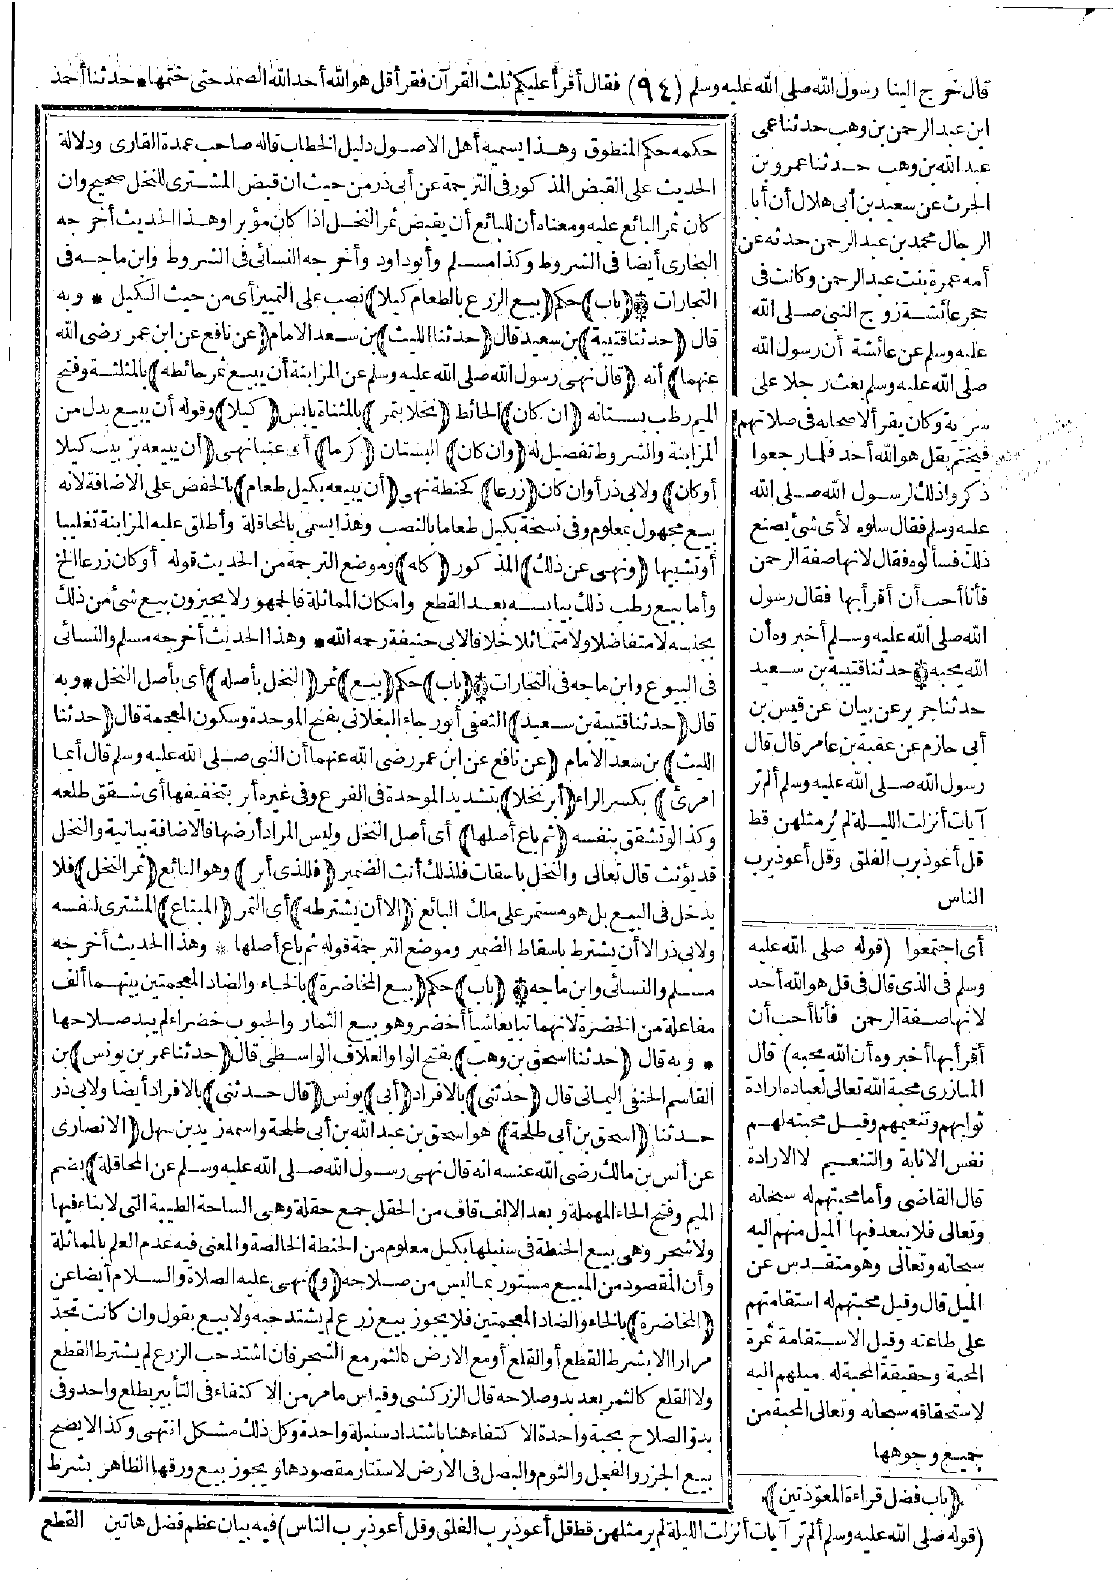 قال خرج الينا رسول الله صلى الله عليه وسلم (٩٤) فقال أقرأ عليكم ثلث القرآن فقرأ قل هو الله أحد الله الصمد حتى ختمها * حدثنا أحمد
ابن عبد الرحمن بن وهب حدثنا عمى
عبد الله بن وهب حدثنا عمرو بن
الحرث عن سعيد بن أبى هلال أن أبا
الرجال محمد بن عبد الرحمن حدثه عن
أمه عمرة بنت عبد الرحمن وكانت فى
حجر عائشة زوج النبى صلى الله
عليه وسلم عن عائشة أن رسول الله
صلى الله عليه وسلم بعث رجلا على
سرية وكان يقرأ لاصحابه فى صلاتهم
فيختم بقل هو الله أحد فلما رجعوا
ذكروا ذلك لرسول الله صلى الله
عليه وسلم فقال سلوه لأى شئ يصنع
ذلك فسألوه فقال لانها صفة الرحمن
فأنا أحب أن أقرأ بها فقال رسول
الله صلى الله عليه وسلم أخبروه أن
الله يحبه * حدثنا قتيبة بن سعيد
حدثنا جرير عن بيان عن قيس بن
أبى حازم عن عقبة بن عامر قال قال
رسول الله صلى الله عليه وسلم ألم تر
آيات أنزلت الليلة لم ير مثلهن قط
قل أعوذ برب الفلق وقل أعوذ برب
الناس
أى اجتمعوا (قوله صلى الله عليه
وسلم فى الذى قال فى قل هو الله أحد
لانها صفة الرحمن فأنا أحب أن
أقرأ بها أخبروه أن الله يحبه) قال
المازرى محبة الله تعالى لعباده ارادة
ثوابهم وتنعيمهم وقيل محبته لهم
نفس الاثابة والتنعيم لا الارادة
قال القاضى وأما محبتهم له سبحانه
وتعالى فلا يبعد فيها الميل منهم اليه
سبحانه وتعالى وهو متقدس عن
الميل قال وقيل محبتهم له استقامتهم
على طاعته وقيل الاستقامة ثمرة
المحبة وحقيقة المحبة له ميلهم اليه
لاستحقاقه سبحانه وتعالى المحبة من
جميع وجوهها
(باب فضل قراءة المعوّذتين)
(قوله صلى الله عليه وسلم ألم تر آيات أنزلت الليلة لم ير مثلهن قط قل أعوذ برب الفلق وقل أعوذ برب الناس) فيه بيان عظم فضل هاتين
حكمه حكم المنطوق وهذا يسميه أهل الاصول دليل الخطاب قاله صاحب عمدة القارى ودلالة
الحديث على القبض المذكور فى الترجمة عن أبى ذر من حيث ان قبض المشترى للنخل صحيح وان
كان ثمر البائع عليه ومعناه أن للبائع أن يقبض ثمر النخل اذا كان مؤبرا وهذا الحديث أخرجه
البخارى أيضا فى الشروط وكذا مسلم وأبو داود وأخرجه النسائى فى الشروط وابن ماجه فى
التجارات * (باب) حكم (بيع الزرع بالطعام كيلا) نصب على التمييز أى من حيث الكيل * وبه
قال (حدثنا قتيبة) بن سعيد قال (حدثنا الليث) بن سعد الامام (عن نافع عن ابن عمر رضى الله
عنهما) أنه (قال نهى رسول الله صلى الله عليه وسلم عن المزابنة أن يبيع ثمر حائطه) بالمثلثة وفتح
الميم رطب بستانه (ان كان) الحائط (نخلا بتمر) بالمثناة يابس (كيلا) وقوله أن يبيع بدل من
المزابنة والشروط تفصيل له (وان كان) البستان (كرما) أى عنبا نهى (أن يبيعه بزبيب كيلا
أو كان) ولابى ذر أوان كان (زرعا) كحنطة نهى (أن يبيعه بكيل طعام) بالخفض على الاضافة لانه
بيع مجهول بمعلوم وفى نسخة بكيل طعاما بالنصب وهذا يسمى بالمحاقلة وأطلق عليه المزابنة تغليبا
أو تشبيها (ونهى عن ذلك) المذكور (كله) وموضع الترجمة من الحديث قوله أو كان زرعا الخ
وأما بيع رطب ذلك بيابسه بعد القطع وامكان المماثلة فالجمهور لا يجيزون بيع شئ من ذلك
بجنسه لا متفاضلا ولا متماثلا خلافا لابى حنيفة رحمه الله * وهذا الحديث أخرجه مسلم والنسائى
فى البيوع وابن ماجه فى التجارات * (باب) حكم (بيع) ثمر (النخل بأصله) أى بأصل النخل * وبه
قال (حدثنا قتيبة بن سعيد) الثقفى أبو رجاء البغلانى بفتح الموحدة وسكون المعجمة قال (حدثنا
الليث) بن سعد الامام (عن نافع عن ابن عمر رضى الله عنهما أن النبى صلى الله عليه وسلم قال أيما
امرئ) بكسر الراء (أبر نخلا) بتشديد الموحدة فى الفرع وفى غيره أبر بتخفيفها أى شقق طلعه
وكذا لو تشقق بنفسه (ثم باع أصلها) أى أصل النخل وليس المراد أرضها فالاضافة بيانية والنخل
قد يؤنث قال تعالى والنخل باسقات فلذلك أنث الضمير (فللذى أبر) وهو البائع (ثمر النخل) فلا
يدخل فى البيع بل هو مستمر على ملك البائع (الا أن يشترطه) أى الثمر (المبتاع) المشترى لنفسه
ولابى ذر الا أن يشترط باسقاط الضمير وموضع الترجمة قوله ثم باع أصلها * وهذا الحديث أخرجه
مسلم والنسائى وابن ماجه * (باب) حكم (بيع المخاضرة) بالخاء والضاد المعجمتين بينهما ألف
مفاعلة من الخضرة لانهما تبايعا شيأ أخضر وهو بيع الثمار والحبوب خضراء لم يبد صلاحها
* وبه قال (حدثنا اسحق بن وهب) بفتح الواو العلاف الواسطى قال (حدثنا عمر بن يونس) بن
القاسم الحنفى اليمانى قال (حدثنى) بالافراد (أبى) يونس (قال حدثنى) بالافراد أيضا ولابى ذر
حدثنا (اسحق بن أبى طلحة) هو اسحق بن عبد الله بن أبى طلحة واسمه زيد بن سهل (الانصارى
عن أنس بن مالك رضى الله عنه انه قال نهى رسول الله صلى الله عليه وسلم عن المحاقلة) بضم
الميم وفتح الحاء المهملة وبعد الالف قاف من الحقل جمع حقلة وهى الساحة الطيبة التى لا بناء فيها
ولا شجر وهى بيع الحنطة فى سنبلها بكيل معلوم من الحنطة الخالصة والمعنى فيه عدم العلم بالمماثلة
وأن المقصود من المبيع مستور بما ليس من صلاحه (و) نهى عليه الصلاة والسلام أيضا عن
(المخاضرة) بالخاء والضاد المعجمتين فلا يجوز بيع زرع لم يشتد حبه ولا بيع بقول وان كانت تجذ
مرارا الا بشرط القطع أو القلع أو مع الارض كالثمر مع الشجر فان اشتد حب الزرع لم يشترط القطع
ولا القلع كالثمر بعد بدو صلاحه قال الزركشى وقياس ما مر من الاكتفاء فى التأبير بطلع واحد وفى
بدو الصلاح بحبة واحدة الاكتفاء هنا باشتداد سنبلة واحدة وكل ذلك مشكل انتهى وكذا لا يصح
بيع الجزر والفجل والثوم والبصل فى الارض لاستتار مقصودها ويجوز بيع ورقها الظاهر بشرط
القطع